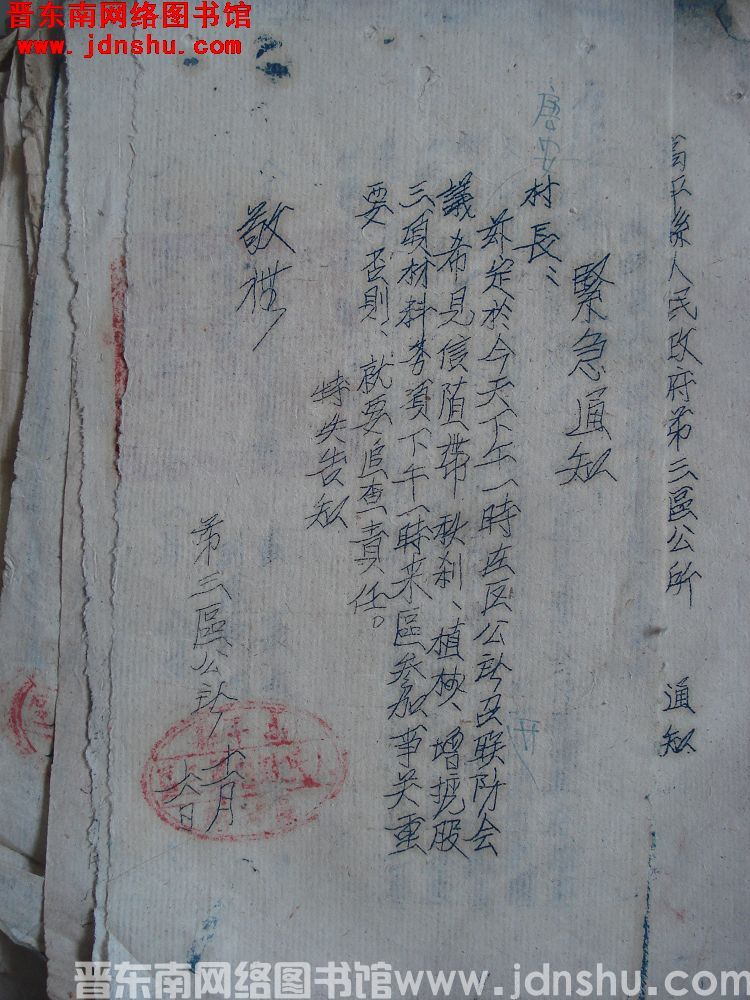 晋东南网络图书馆
www.jdnshu.com
高平縣人民政府第三區公所 通知
緊急通知
唐安村長：
茲定於今天下午一時在区公所召联防会
議希見信随带秋剎、植棉、增挖股
三項材料考頁下午一時来區参加事关重
要否則、就要追查責任。
特先告知
敬礼
第三區公所
十一月
六日
晋东南网络图书馆www.jdnshu.com